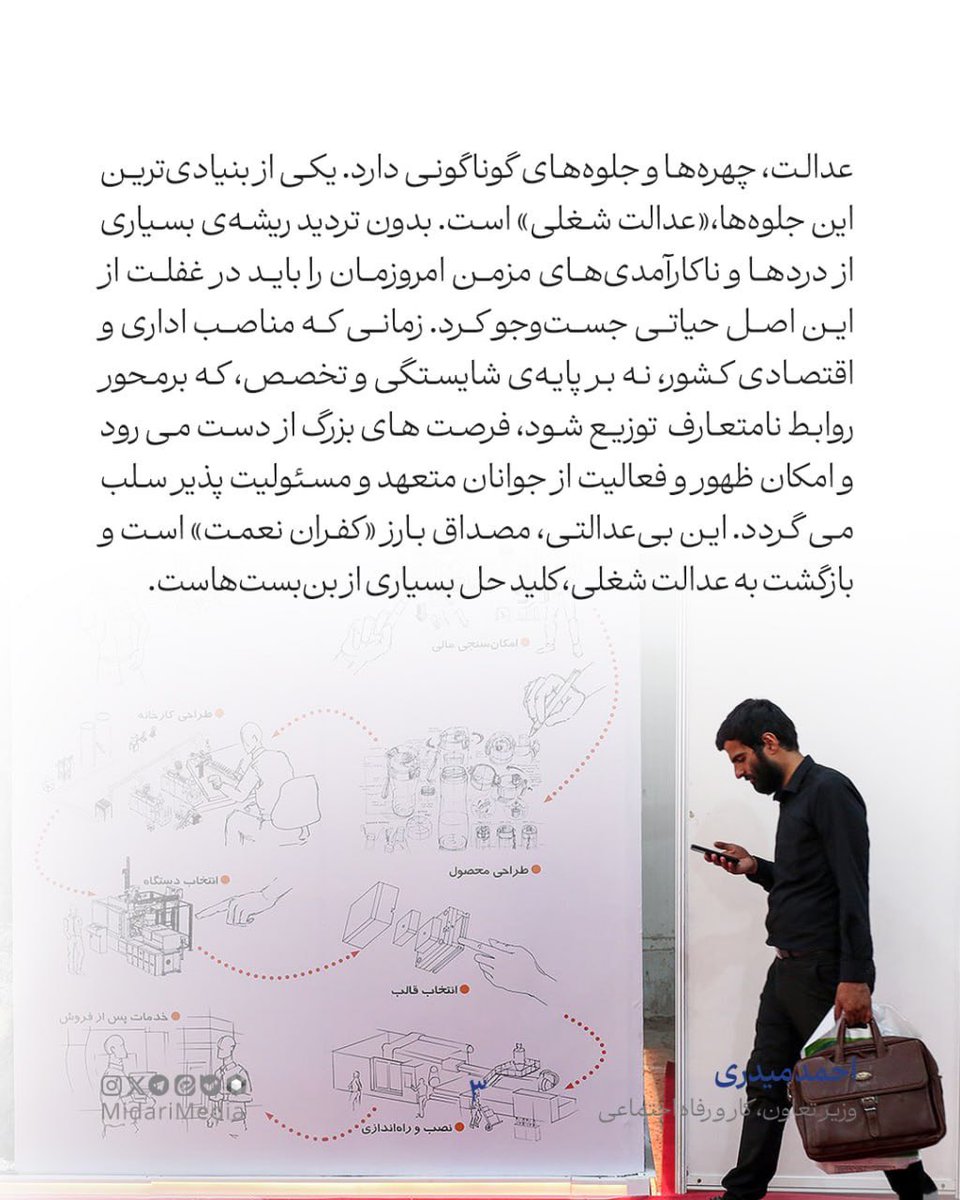 عدالت، چهره‌ها و جلوه‌های گوناگونی دارد. یکی از بنیادی‌ترین
این جلوه‌ها،«عدالت شغلی» است. بدون تردید ریشه‌ی بسیاری
از دردها و ناکارآمدی‌های مزمن امروزمان را باید در غفلت از
این اصل حیاتی جست‌وجو کرد. زمانی که مناصب اداری و
اقتصادی کشور، نه بر پایه‌ی شایستگی و تخصص، که برمحور
روابط نامتعارف توزیع شود، فرصت های بزرگ از دست می رود
و امکان ظهور و فعالیت از جوانان متعهد و مسئولیت پذیر سلب
می گردد. این بی‌عدالتی، مصداق بارز «کفران نعمت» است و
بازگشت به عدالت شغلی،کلید حل بسیاری از بن‌بست‌هاست.
امکان‌سنجی مالی
طراحی کارخانه
طراحی محصول
انتخاب دستگاه
انتخاب قالب
خدمات پس از فروش
نصب و راه‌اندازی
احمد میدری
وزیر تعاون، کار و رفاه اجتماعی
۳
MidariMedia